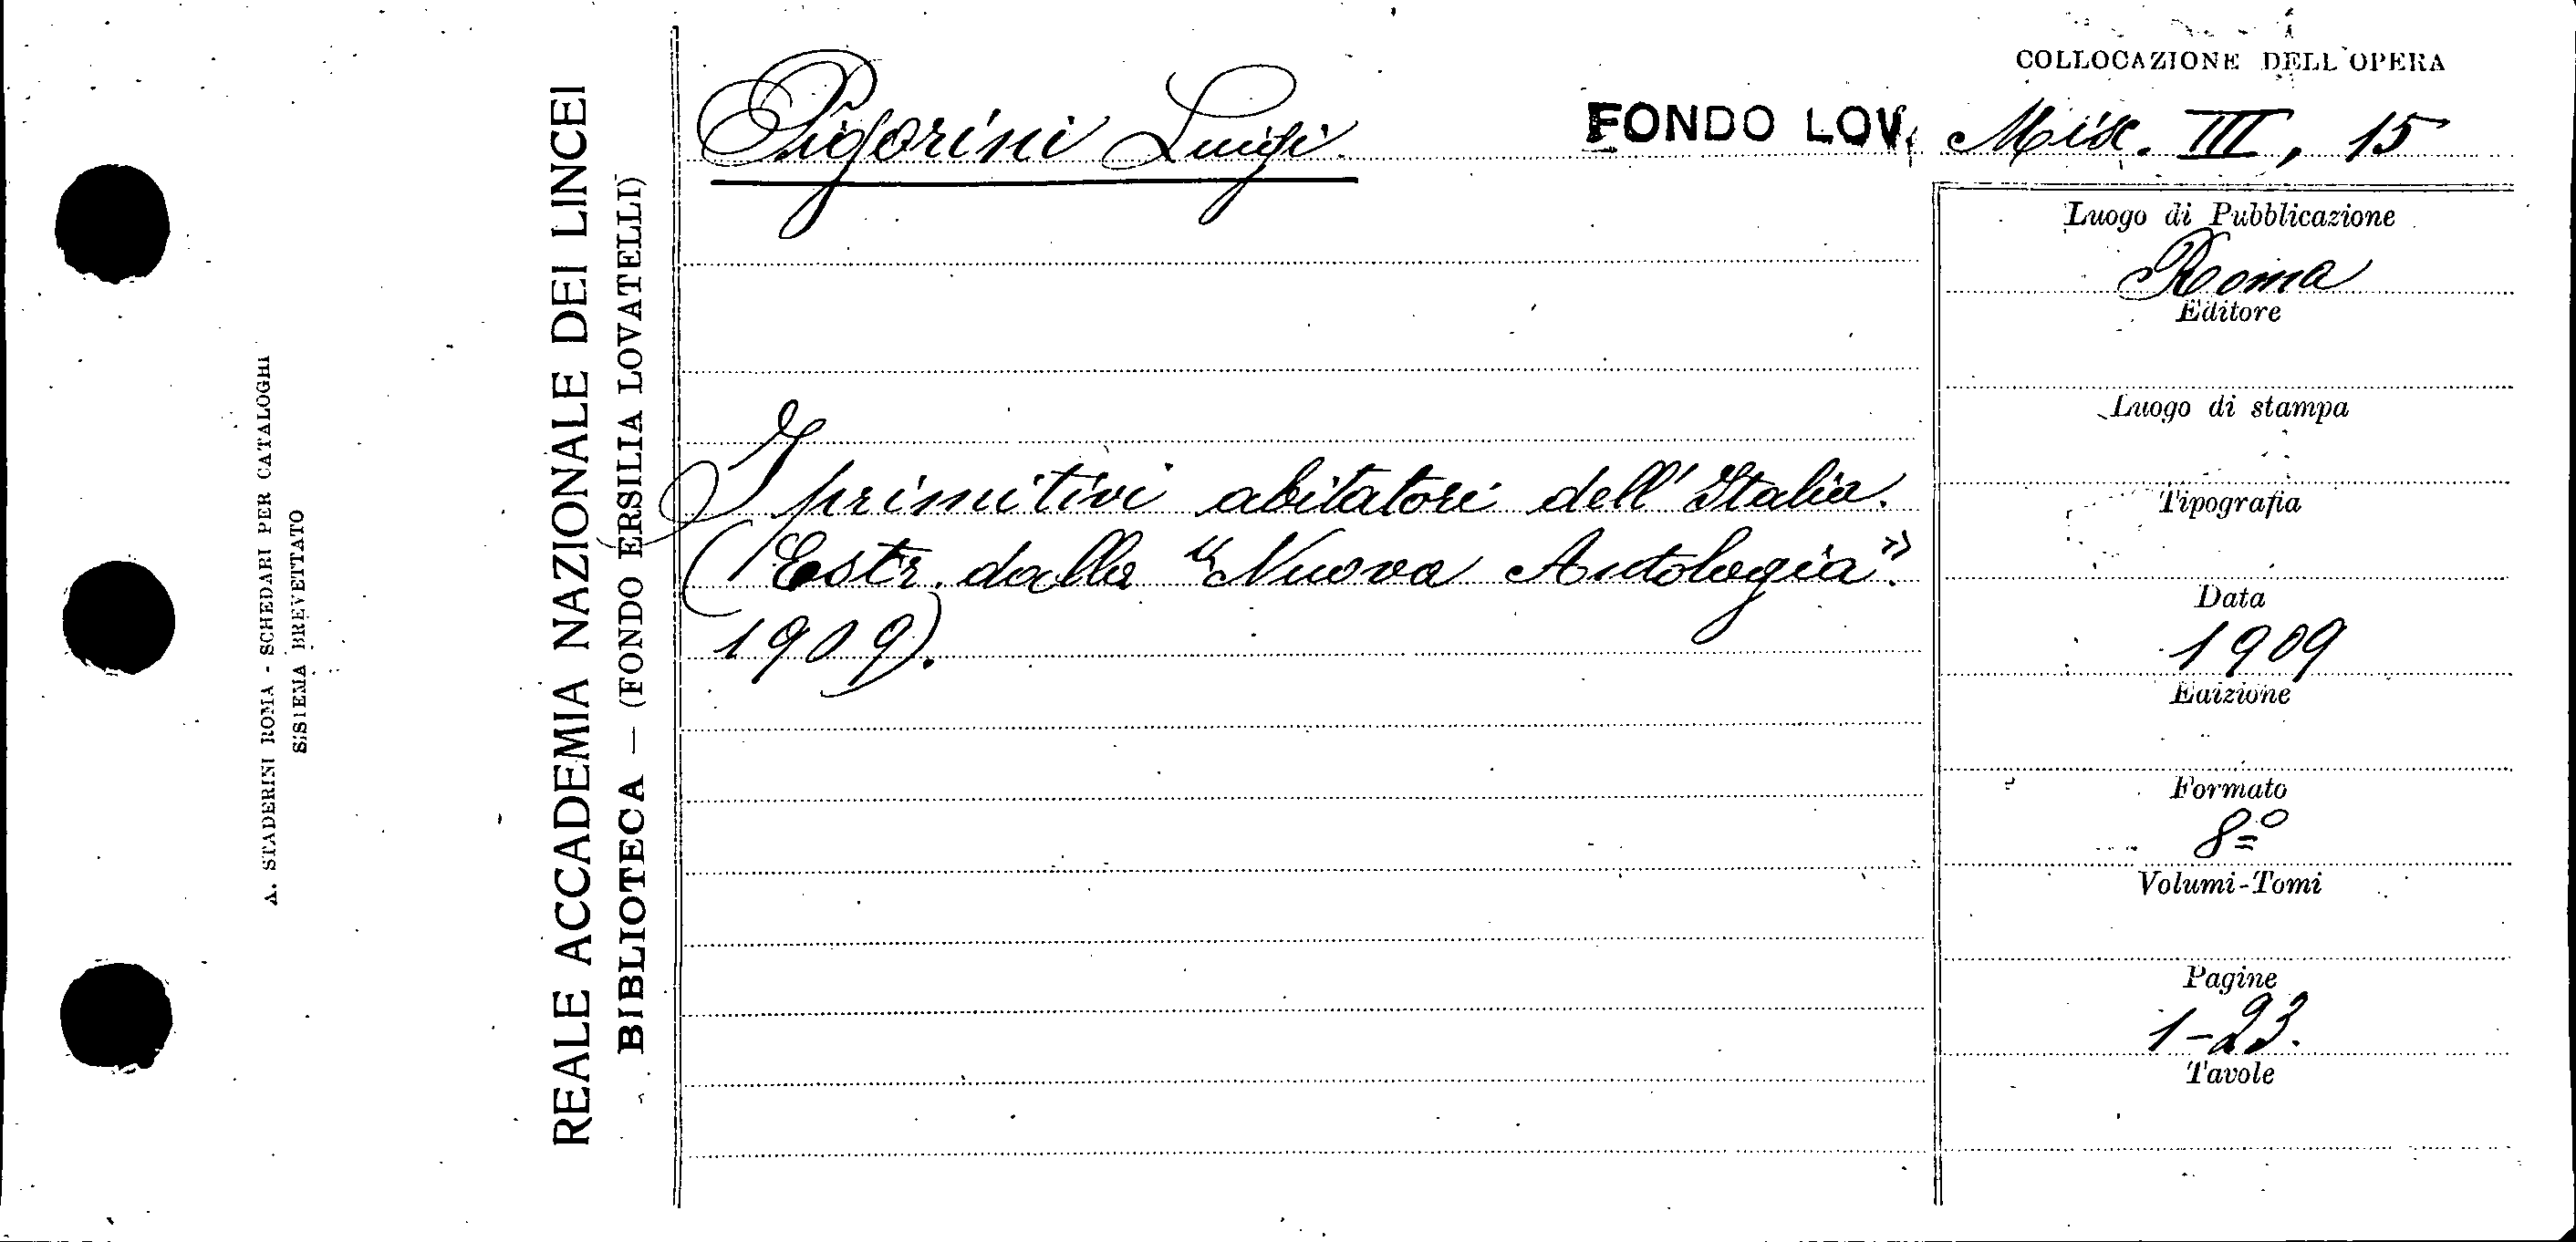 A. STADERINI ROMA - SCHEDARI PER CATALOGHI
SISTEMA BREVETTATO
REALE ACCADEMIA NAZIONALE DEI LINCEI
BIBLIOTECA — (FONDO ERSILIA LOVATELLI)
COLLOCAZIONE DELL'OPERA
Pigorini Luigi.
FONDO LOV. Misc. III, 15
I primitivi abitatori dell'Italia.
(Estr. dalla "Nuova Antologia".
1909).
Luogo di Pubblicazione
Roma
Editore
Luogo di stampa
Tipografia
Data
1909
Edizione
Formato
8º
Volumi-Tomi
Pagine
1-23.
Tavole